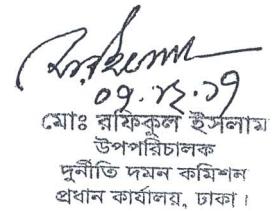 ০৭.১২.১৭
মোঃ রফিকুল ইসলাম
উপপরিচালক
দুর্নীতি দমন কমিশন
প্রধান কার্যালয়, ঢাকা।